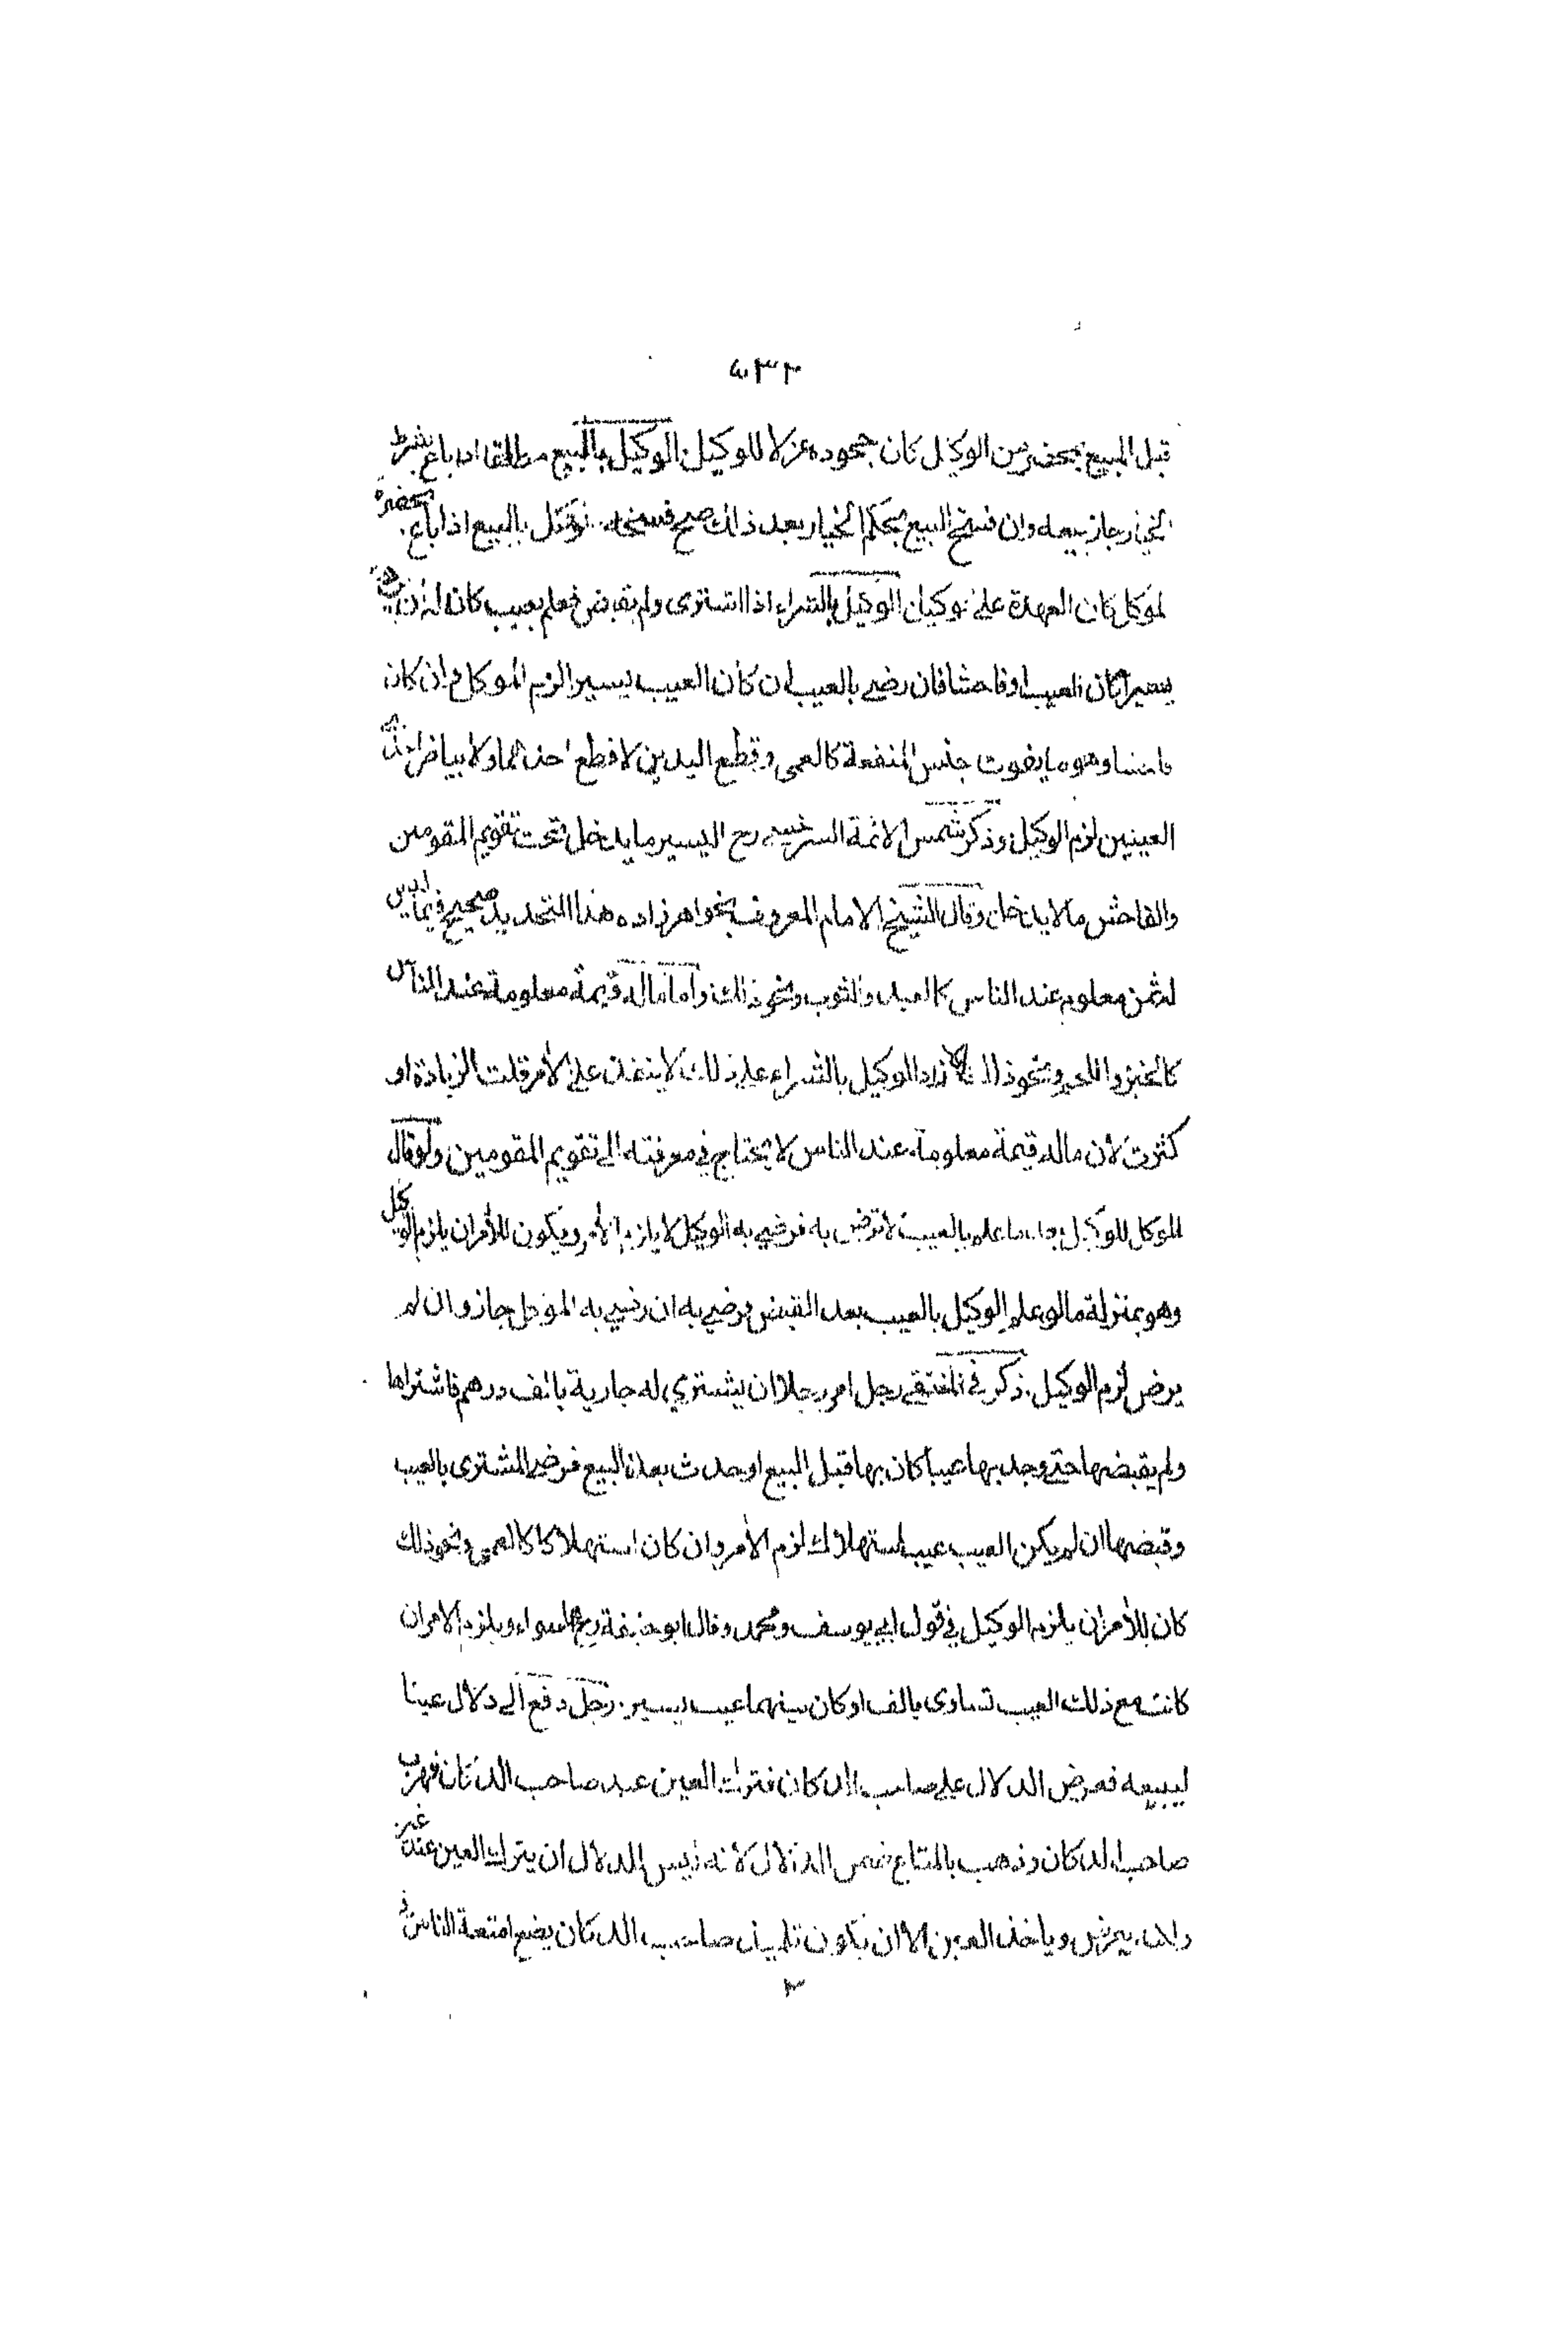 قبل البيع بمحضر من الوكيل كان جحوده عزلا للوكيل الوكيل بالبيع مطلقا اذا باع بشرط
الخيار جاز بيعه وان فسخ البيع بحكم الخيار بعد ذلك صح فسخه بالبيع اذا باع بحضرة
لموكل كان العهدة على الوكيل الوكيل بالشراء اذا اشترى ولم يقبض فعلم بعيب كان له ان
يسيرا كان العيب او فاحشا فان رضي بالعيب ان كان العيب يسيرا لزم الموكل وان كان
فاحشا وهو ما يفوت جنس المنفعة كالعمى وقطع اليدين لا قطع احدهما ولا بياض احدى
العينين لزم الوكيل وذكر شمس الائمة السرخسي رح اليسير ما يدخل تحت تقويم المقومين
والفاحش ما لا يدخل وقال الشيخ الامام المعروف بخواهر زاده هذا التحديد صحيح فيما ليس
له ثمن معلوم عند الناس كالعبد والثوب ونحو ذلك واما ماله قيمة معلومة عند الناس
كالخبز واللحم ونحو ذلك زاد الوكيل بالشراء على ذلك لا ينفذ على الآمر قلت الزيادة او
كثرت لان ماله قيمة معلومة عند الناس لا يحتاج في معرفته الى تقويم المقومين ولو قال
الموكل للوكيل بعد ما علم بالعيب لا ترض به فرضي به الوكيل لا يلزم الآمر ويكون للآمر ان يلزم الوكيل
وهو بمنزلة ما لو علم الوكيل بالعيب بعد القبض فرضي به ان رضي به الموكل جاز وان لم
يرض لزم الوكيل ذكر في المنتقى رجل امر رجلا ان يشتري له جارية بالف درهم فاشتراها
ولم يقبضها حتى وجد بها عيبا كان بها قبل البيع او حدث بعد البيع فرضي المشترى بالعيب
وقبضها ان لم يكن العيب عيب استهلاك لزم الآمر وان كان استهلاكا كالعمى ونحو ذلك
كان للآمر ان يلزم الوكيل في قول ابي يوسف ومحمد وقال ابو حنيفة رح هما سواء ويلزم الآمر ان
كانت مع ذلك العيب تساوى بالف او كان بينهما عيب يسير رجل دفع الى دلال عينا
ليبيعه فعرض الدلال على صاحب الدكان فترك العين عند صاحب الدكان فهرب
صاحب الدكان وذهب بالمتاع ضمن الدلال لانه ليس للدلال ان يترك العين عند غير
ويأخذ العين الا ان يكون صاحب الدكان يضع امتعة الناس في